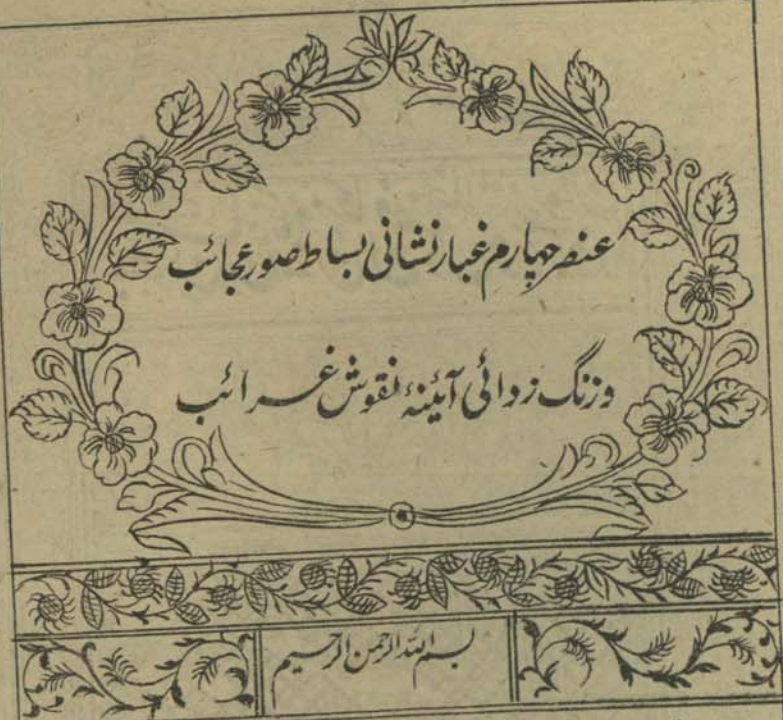 عنصر چهارم غبار نشانی بساط صور عجائب
و زنگ زدائی آئینۂ نقوش غرائب
بسم الله الرحمن الرحیم